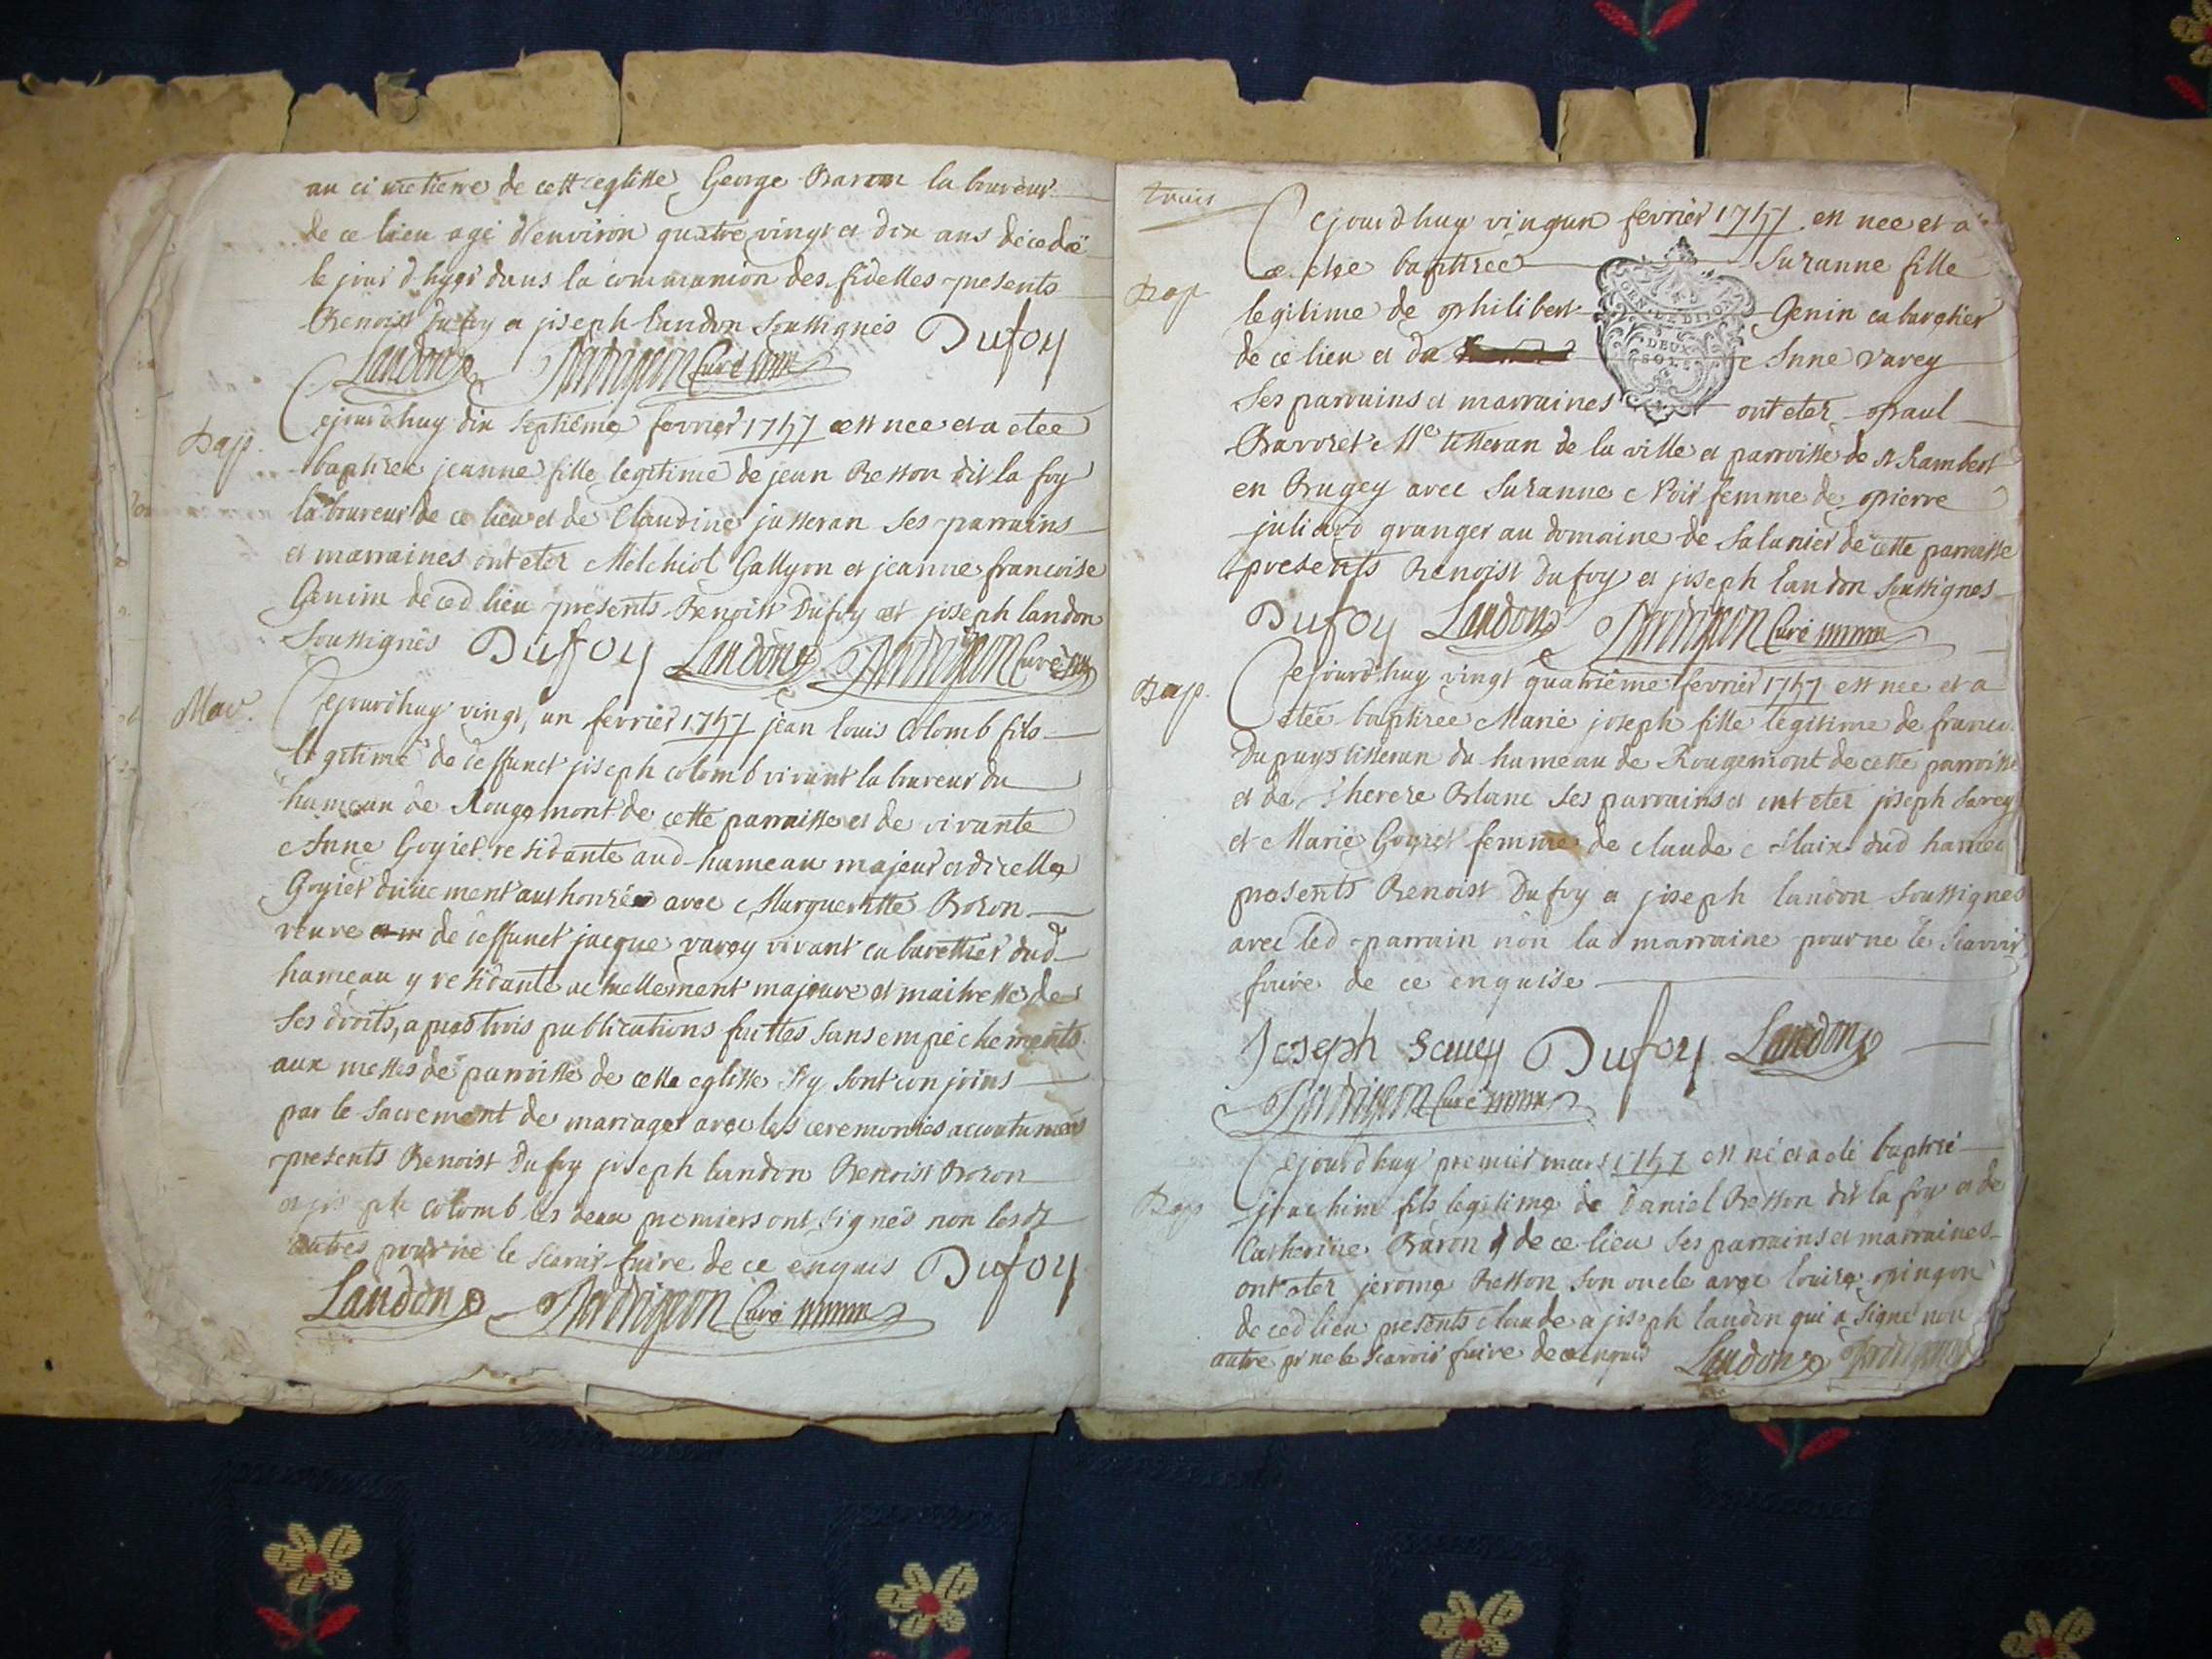 au cimetierre de cette eglisse George Baron laboureur
de ce lieu agé d'environ quatre vingt et dix ans décedé
le jour d'hyer dans la communion des fidelles presents
Benoist Dufoy et joseph landon soussignés Dufoy
Landon curé
Bap.
Cejourdhuy dix septieme fevrier 1757 est nee et a etee
baptizee jeanne fille legitime de jean Besson dit la foy
laboureur de ce lieu et de Claudine jusseran ses parrains
et marraines ont etez Melchiol Gallyon et jeanne francoise
Genin de ced lieu presents Benoist Dufoy et joseph landon
soussignés Dufoy Landon curé
Mar.
Cejourdhuy vingt, un fevrier 1757 jean louis Colomb fils
legitime de deffunct joseph colomb vivant laboureur du
hameau de Rougemont de cette parroisse et de vivante
Anne Goyiet residante aud hameau majeur et d'icelle
Goyiet duëment authorizé avec Marguerittte Bozon
veuve de deffunct jacque varey vivant cabarettier dud
hameau y residante actuellement majeure et maitresse de
ses droits, apres trois publications faittes sans empéchements
aux messes de parroisse de cette eglisse s'y sont conjoins
par le sacrement de mariage avec les ceremonies accoutumées
presents Benoist Dufoy joseph landon Benoist Bozon
et joseph colomb les deux premiers ont signés non les
autres pour ne le scavoir faire de ce enquis Dufoy
Landon curé
trois
Cejourdhuy vingun fevrier 1757 est nee et a
etée baptizée Suzanne fille
Bap
legitime de philibert Genin cabaretier
de ce lieu et de Anne varey
GEN. DE DIJON
DEUX
SOLS
ses parrains et marraines ont etez paul
Bavozet Me tisseran de la ville et parroisse de st Rambert
en Bugey avec Suzanne femme de pierre
juliard granger au domaine de Salanier de cette parroisse
presents Benoist Dufoy et joseph landon soussignes
Dufoy Landon curé
Bap.
Cejourdhuy vingt quatrieme fevrier 1757 est nee et a
etée baptizee Marie joseph fille legitime de
Dupuys tisseran du hameau de Rougemont de cette parroisse
et de Therese Blanc ses parrains et ont etez joseph Savey
et Marie Goyiet femme de claude dud hameau
presents Benoist Dufoy et joseph landon soussignes
avec led parrain non lad marraine pour ne le scavoir
faire de ce enquise
Joseph Savey Dufoy Landon
curé
Bap
Cejourdhuy premier mars 1757 est né et a eté baptizé
joachim fils legitime de Daniel Besson dit la foy et de
Catherine Baron de ce lieu ses parrains et marraines
ont etez jerome Besson son oncle avec louize pingon
de ced lieu presents claude a joseph landon qui a signé non
autre pr ne le scavoir faire de ce enquis Landon